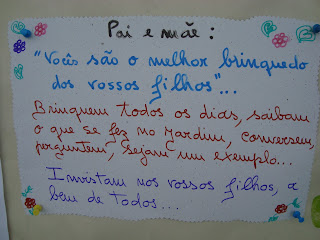 Pai e mãe:
"Vocês são o melhor brinquedo
dos vossos filhos"...
Brinquem todos os dias, saibam
o que se fez no jardim, conversem,
perguntem, sejam um exemplo...
Invistam nos vossos filhos, a
bem de todos...